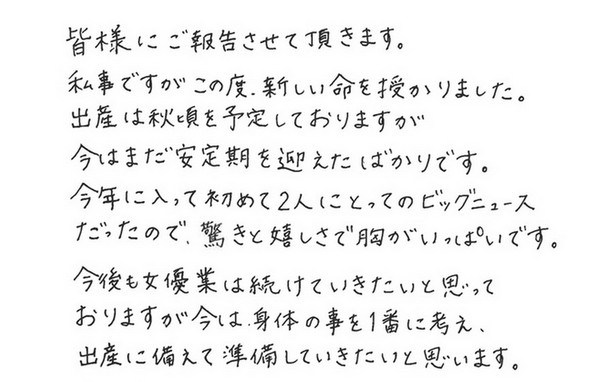 皆様にご報告させて頂きます。
私事ですがこの度、新しい命を授かりました。
出産は秋頃を予定しておりますが
今はまだ安定期を迎えたばかりです。
今年に入って初めて2人にとってのビッグニュース
だったので、驚きと嬉しさで胸がいっぱいです。
今後も女優業は続けていきたいと思って
おりますが今は、身体の事を1番に考え、
出産に備えて準備していきたいと思います。